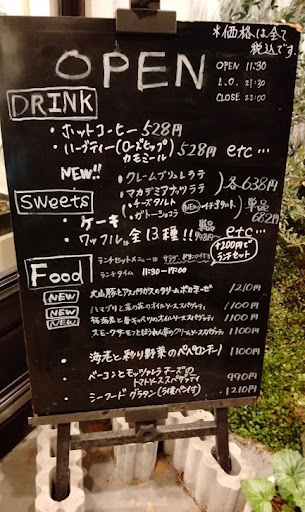 *価格は全て
税込です。
OPEN
OPEN 11:30
L.O. 21:30
CLOSE 22:00
DRINK
・ホットコーヒー 528円
・ハーブティー(ローズヒップ
カモミール) 528円 etc…
NEW!! クレームブリュレラテ
マカデミアナッツラテ 各638円
Sweets
・ケーキ
・チーズタルト NEW
・ガトーショコラ
単品
682円
・ワッフル。全13種!! 単品 etc…
+100円で
ランチセット
Food
ランチセットメニューは
ランチタイム 11:30-17:00
NEW 大山豚とアスパラガスのクリームボロネーゼ 1210円
NEW ハマグリと菜の花のオイルソーススパゲティ 1100円
NEW 桜海老と春キャベツのオイルソーススパゲティ 1100円
スモークサーモンとほうれん草のクリームソーススパゲティ 1100円
海老と彩り野菜のペペロンチーノ 1100円
ベーコンとモッツァレラチーズの
トマトソーススパゲティ 990円
シーフードグラタン(ライ麦パン付) 1210円